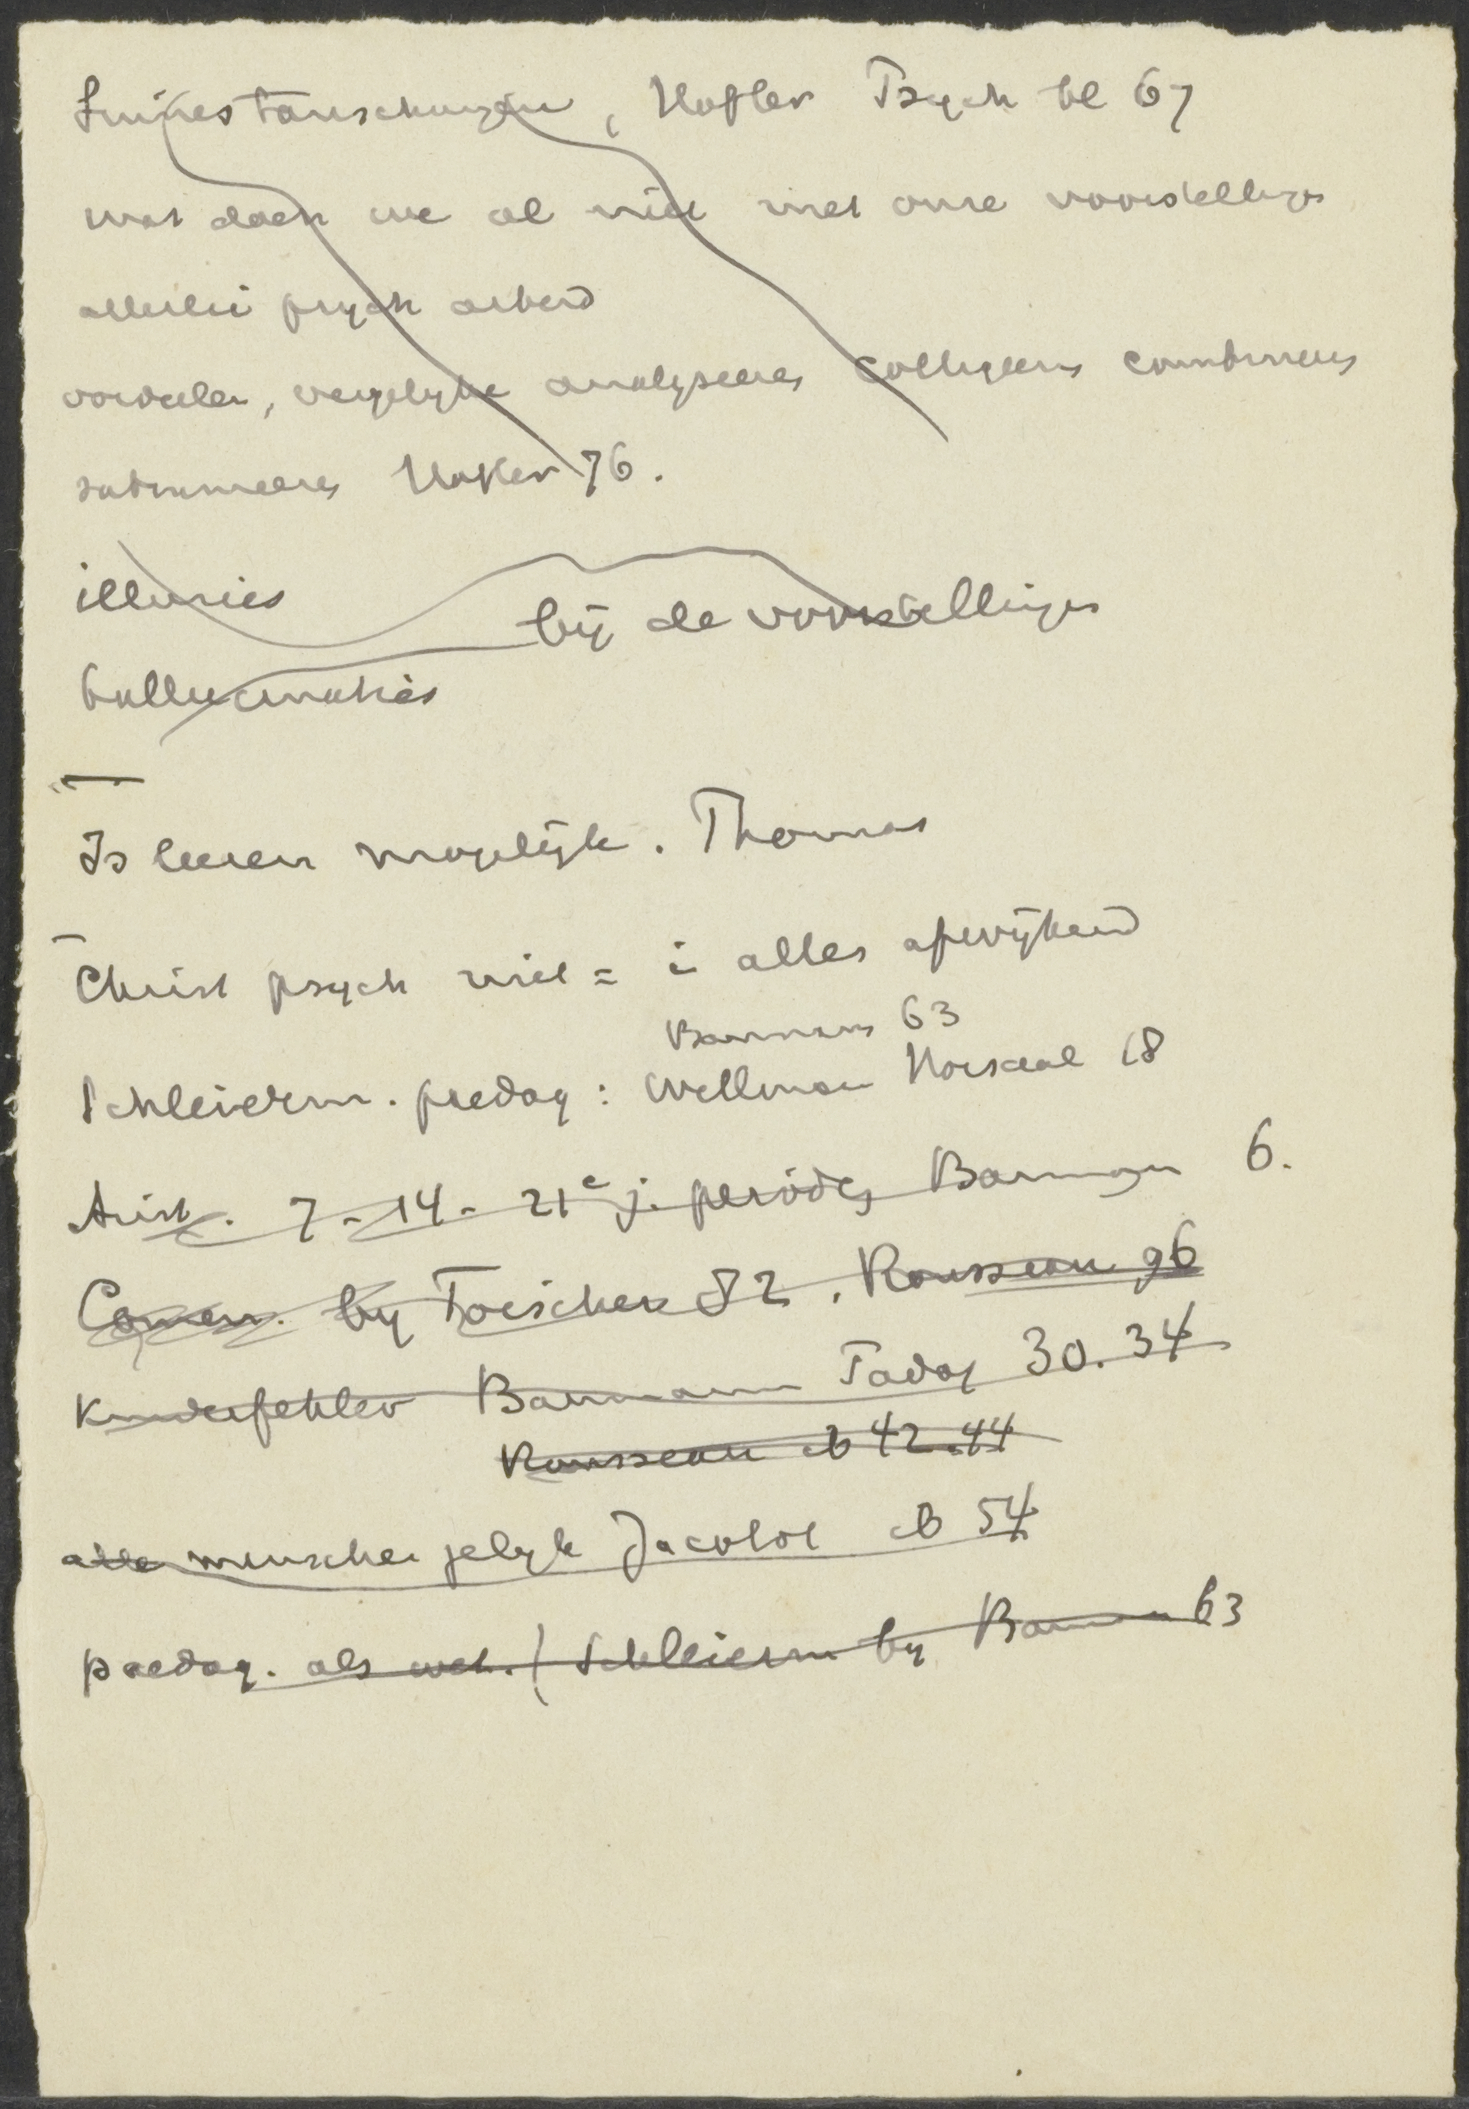 Sinnestäuschungen, Höfler Psych bl 67
wat doen we al niet met onze voorstellingen
allerlei psych arbeid
oordeelen, vergelijken analyseeren colligeeren combineeren
subsumeeren Höfler 76.
illusies
bij de voorstellingen
hallucinaties
Is leeren mogelijk. Thomas
Christ psych niet = in alles afwijkend
Baumann 63
Schleierm. paedag: Willmann Hörsaal 18
Arist. 7-14-21e j. perioden Baumann 6.
Comen. by Toischer 82, Rousseau 96
Kinderfehler Baumann Päd 30.34
Rousseau ib 42.44
alle menschen gelijk Jacotot ib 54
paedag. als wet. (Schleierm by Baumann 63